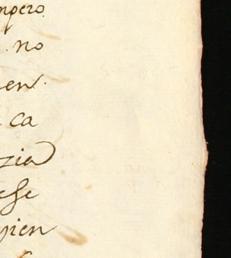 mpero
no
en
ca
zia
ese
pien